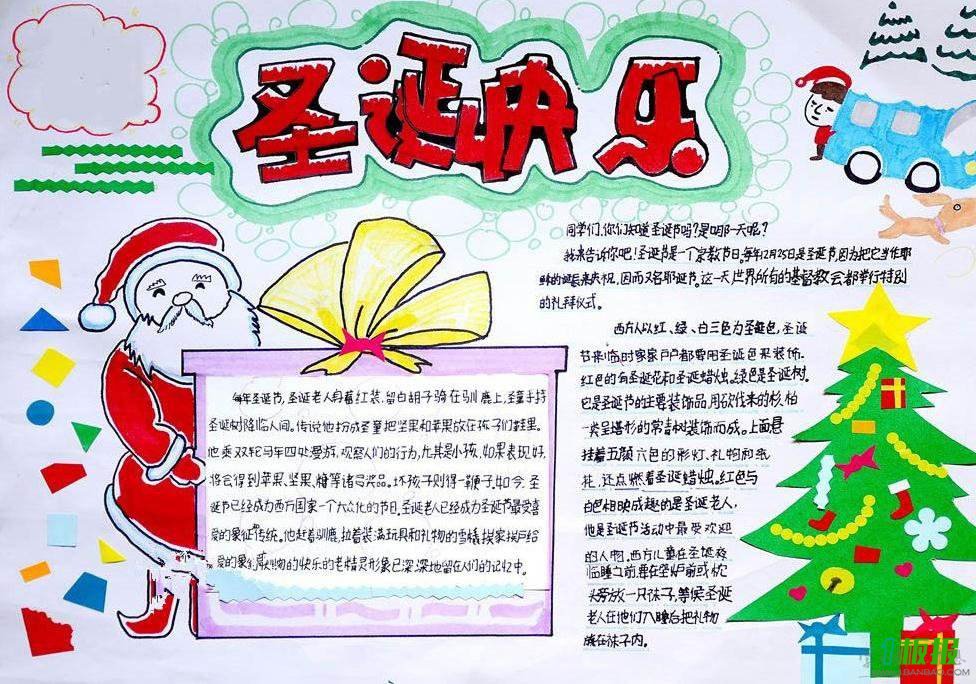 圣诞快乐
同学们,你们知道圣诞节吗?是哪一天呢?
我来告诉你吧!圣诞节是一个宗教节日,每年12月25日是圣诞节,因为把它当作耶
稣的诞辰来庆祝,因而又名耶诞节。这一天世界所有的基督教会都举行特别
的礼拜仪式。
西方人以红、绿、白三色为圣诞色,圣诞
节来临时家家户户都要用圣诞色来装饰。
红色的有圣诞花和圣诞蜡烛。绿色是圣诞树。
它是圣诞节的主要装饰品,用砍伐来的杉、柏
一类呈塔形的常青树装饰而成。上面悬
挂着五颜六色的彩灯、礼物和纸
花,还点燃着圣诞蜡烛。红色与
白色相映成趣的是圣诞老人,
他是圣诞节活动中最受欢迎
的人物。西方儿童在圣诞夜
临睡之前,要在壁炉前或枕
头旁放一只袜子,等候圣诞
老人在他们入睡后把礼物
放在袜子内。
每年圣诞节,圣诞老人身着红装,留白胡子骑在驯鹿上,圣童手持
圣诞树降临人间。传说他扮成圣童把坚果和苹果放在孩子们鞋里。
他乘双轮马车四处漫游,观察人们的行为,尤其是小孩,如果表现好,
将会得到苹果、坚果、糖等诸多奖品。坏孩子则得一鞭子。如今,圣
诞节已经成为西方国家一个大众化的节日,圣诞老人已经成为圣诞节最受喜
爱的象征传统。他赶着驯鹿,拉着装满玩具和礼物的雪橇挨家挨户给
的快乐的老精灵形象已深深地留在人们的记忆中。
板报
BANBAO.COM